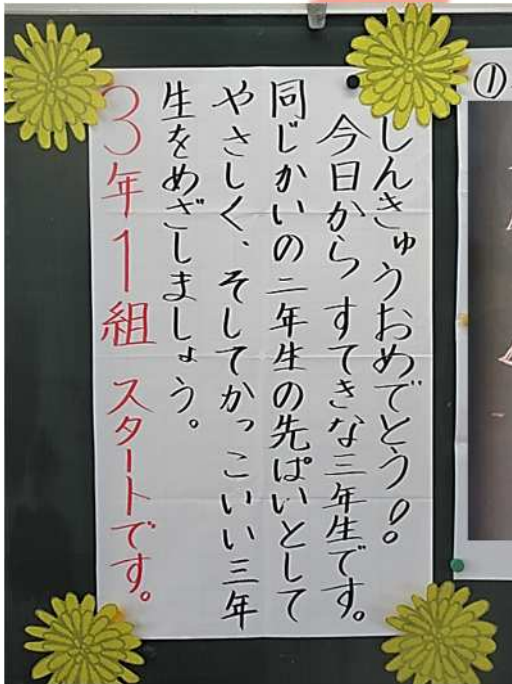 しんきゅうおめでとう!!
今日から すてきな三年生です。
同じかいの二年生の先ぱいとして
やさしく、そしてかっこいい三年
生をめざしましょう。
3年1組 スタートです。
①